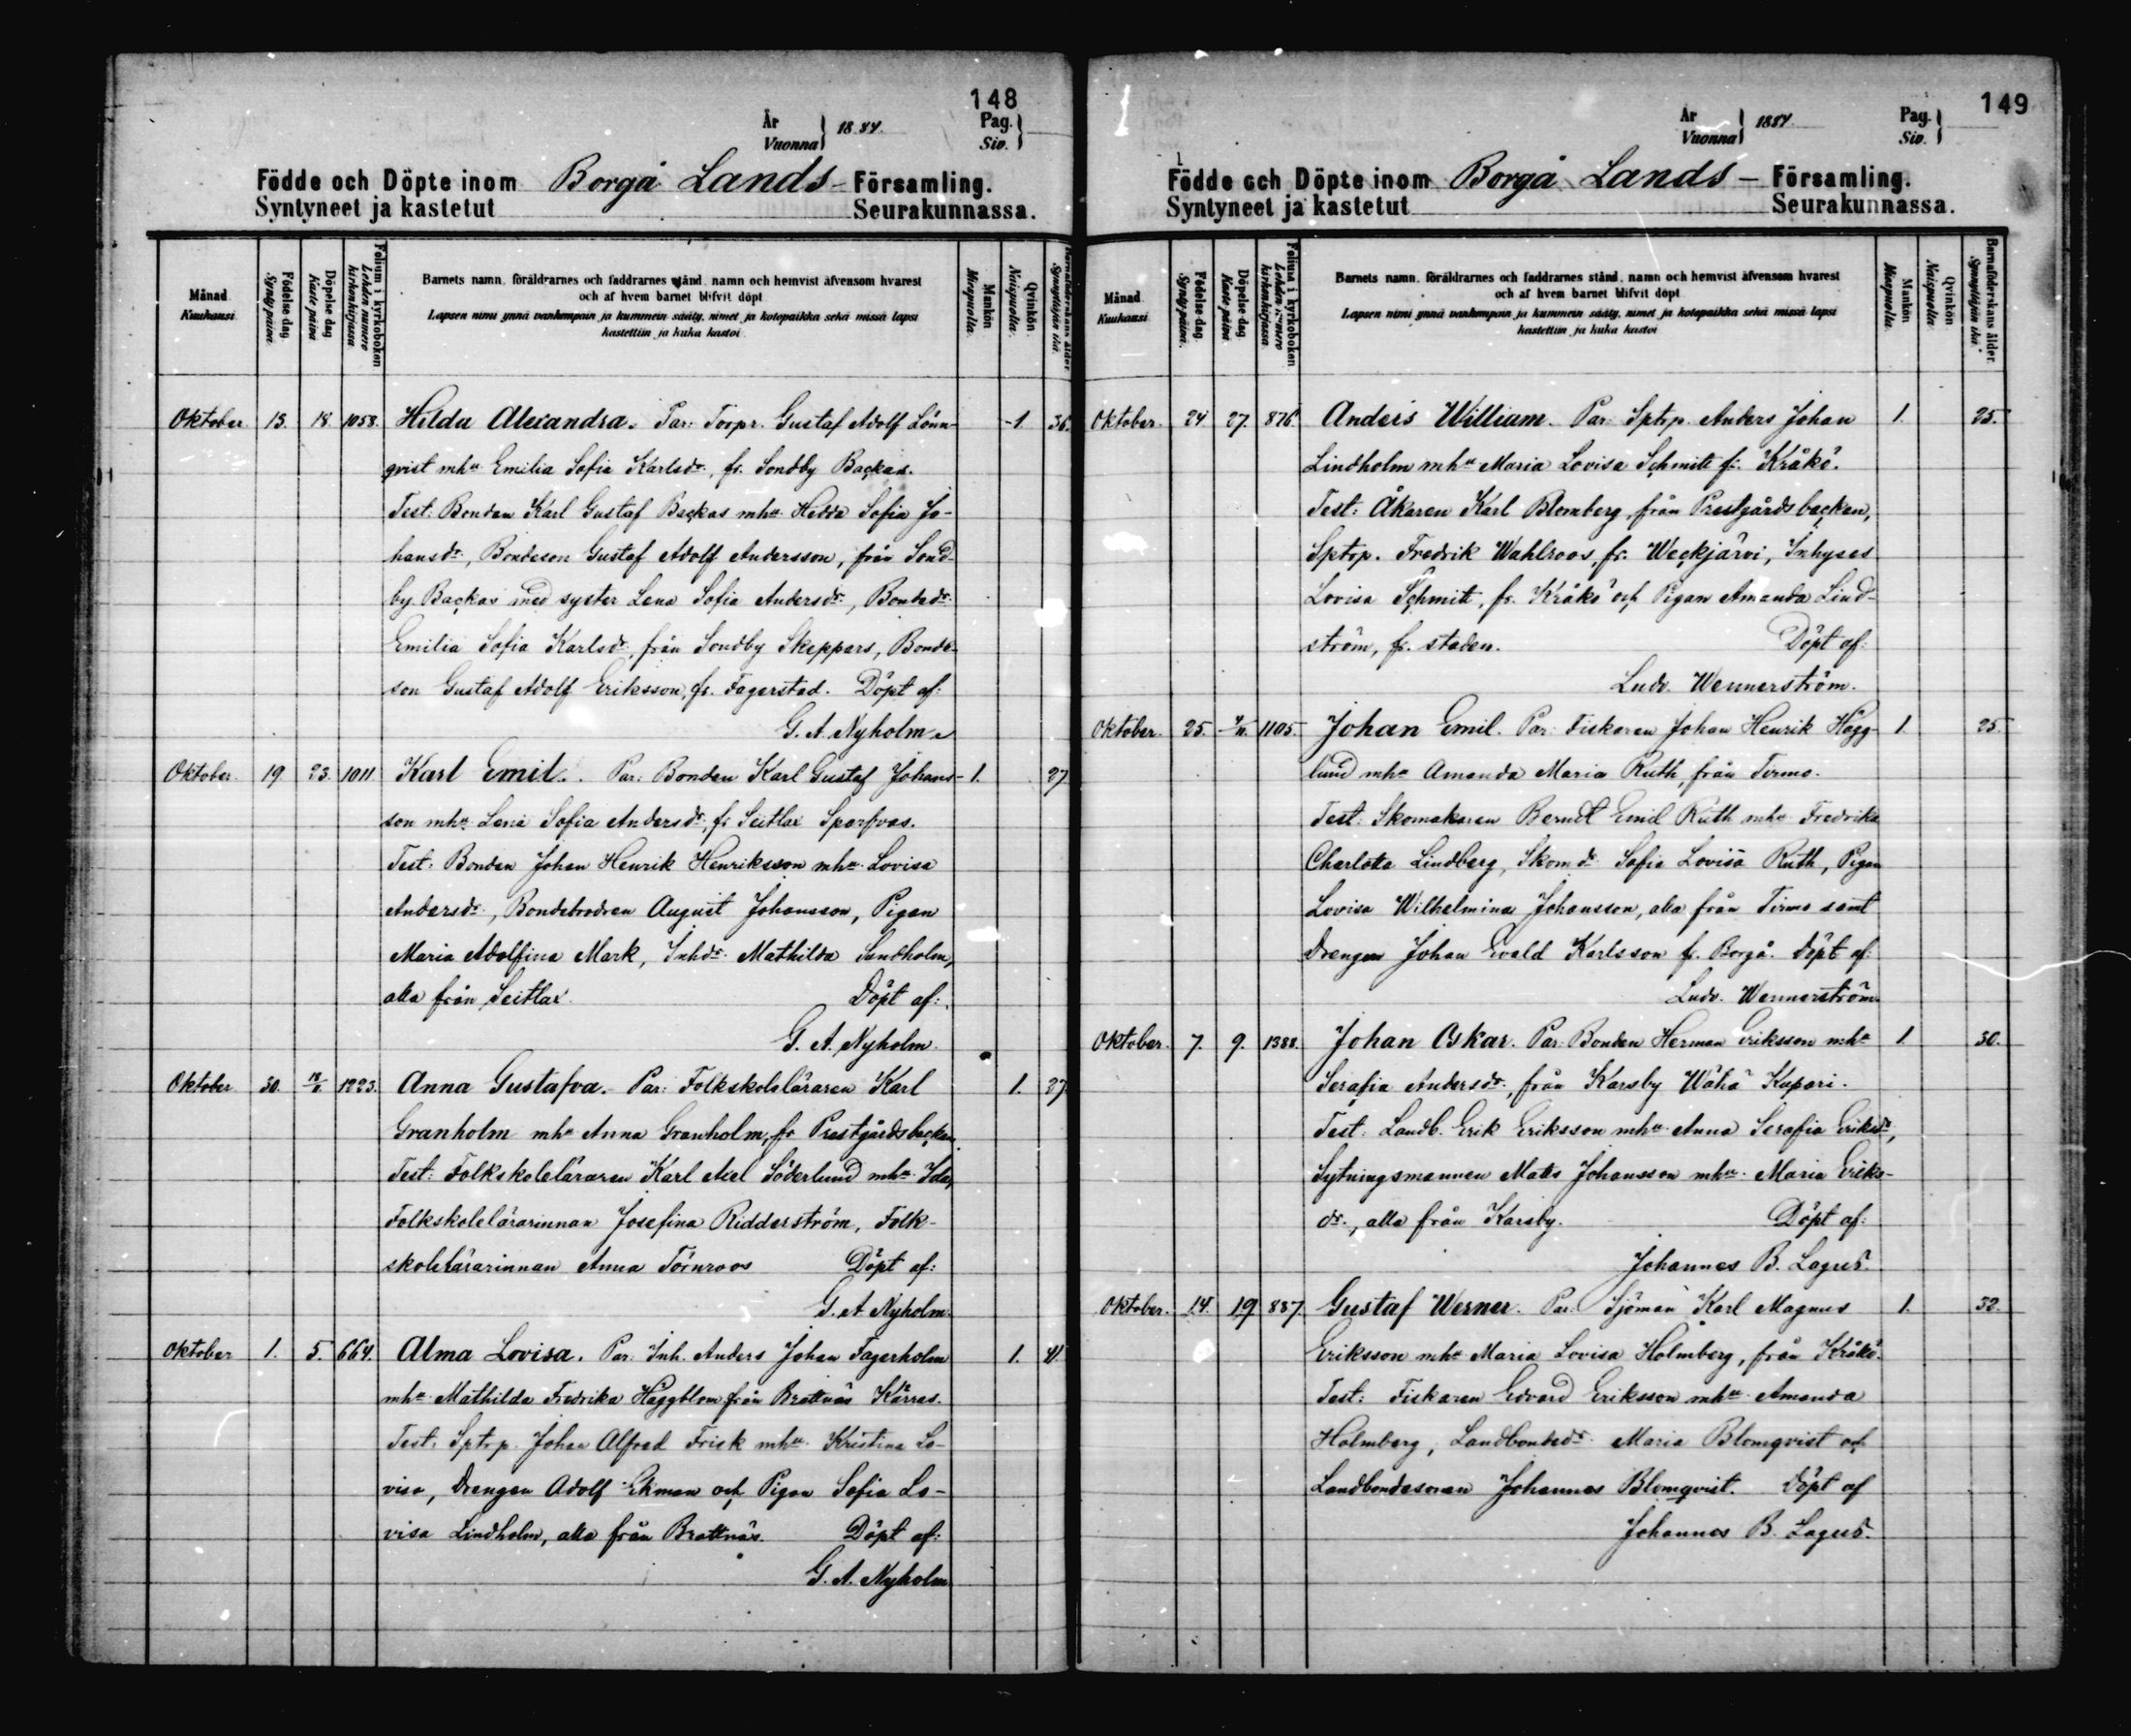 148
År
Vuonna } 1884.
Pag.
Siv. }
Födde och Döpte inom Borgå Lands- Församling.
Syntyneet ja kastetut Seurakunnassa.
Månad
Kuukausi
Födelse dag
Syntypäivä
Döpelse dag
Kaste päivä
Folium i kyrkoboken
Lehden numero kirkonkirjassa
Barnets namn, föräldrarnes och faddrarnes stånd, namn och hemvist äfvensom hvarest
och af hvem barnet blifvit döpt
Lapsen nimi ynnä vanhempain ja kummein sääty, nimet ja kotopaikka sekä missä lapsi
kastettiin ja kuka kastoi
Mankön
Miespuolta
Qvinkön
Naispuolta
Barnaföderskans ålder
Synnyttäjän ikä
Oktober 15. 18. 1058. Hilda Alexandra. Par: Torpr. Gustaf Adolf Lönn- 1 36.
qvist mhu Emilia Sofia Karlsdr., fr. Sondby Backas.
Test: Bonden Karl Gustaf Backas mhu Hedda Sofia Jo-
hansdr., Bondeson Gustaf Adolf Andersson, från Sond-
by Backas med syster Lena Sofia Andersdr., Bondedr.
Emilia Sofia Karlsdr., från Sondby Skeppars, Bonde-
son Gustaf Adolf Eriksson, fr. Fagerstad. Döpt af:
G. A. Nyholm.
Oktober 19. 23. 1011 Karl Emil. Par: Bonden Karl Gustaf Johans- 1. 27
son mhu Lena Sofia Andersdr., fr Seitlax Sparfvas.
Test: Bonden Johan Henrik Henriksson mhu Lovisa
Andersdr., Bondebrodren August Johansson, Pigan
Maria Adolfina Mark, Inhdr. Mathilda Sundholm,
alla från Seitlax. Döpt af:
G. A. Nyholm.
Oktober 30. 1223. Anna Gustafva. Par: Folkskoleläraren Karl 1. 27
Granholm mhu Anna Granholm, fr Prestgårdsbacken
Test: Folkskoleläraren Karl Axel Söderlund mhu Ida,
Folkskolelärarinnan Josefina Ridderström, Folk-
skolelärarinnan Anna Törnroos Döpt af:
G. A Nyholm.
Oktober 1. 5. 664. Alma Lovisa. Par: Inh. Anders Johan Fagerholm 1. 41
mhu Mathilda Fredrika Häggblom från Brattnäs Kärras.
Test: Sptrp. Johan Alfred Frisk mhu Kristina Lo-
visa, Drengen Adolf Ekman och Pigan Sofia Lo-
visa Lindholm, alla från Brattnäs. Döpt af:
G. A. Nyholm
149
År
Vuonna } 1884.
Pag.
Siv. }
Födde och Döpte inom Borgå Lands- Församling.
Syntyneet ja kastetut Seurakunnassa.
Månad
Kuukausi
Födelse dag
Syntypäivä.
Döpelse dag
Kaste päivä
Folium i kyrkoboken
Lehden numero kirkonkirjassa
Barnets namn, föräldrarnes och faddrarnes stånd, namn och hemvist äfvensom hvarest
och af hvem barnet blifvit döpt
Lapsen nimi ynnä vanhempain ja kummein sääty, nimet ja kotopaikka sekä missä lapsi
kastettiin ja kuka kastoi
Mankön
Miespuolta.
Qvinkön
Naispuolta.
Barnaföderskans ålder.
Synnyttäjän ikä.
Oktober. 24 27. 876. Anders William. Par: Sptrp. Anders Johan 1. 25.
Lindholm mhu Maria Lovisa Schmitt fr. Kråkö.
Test: Åkaren Karl Blomberg, från Prestgårdsbacken,
Sptrp. Fredrik Wahlroos, fr. Weckjärvi, Inhyses
Lovisa Schmitt, fr. Kråkö och Pigan Amanda Lind-
ström, fr. staden. Döpt af:
Ludv. Wennerström.
Oktober. 25. 1105. Johan Emil. Par: Fiskaren Johan Henrik Hägg- 1. 25.
lund mhu Amanda Maria Ruth, från Tirmo.
Test: Skomakaren Berndt Emil Ruth mhu Fredrika
Charlotta Lindberg, Skomdr. Sofia Lovisa Ruth, Pigan
Lovisa Wilhelmina Johansson, alla från Tirmo samt
Drengen Johan Evald Karlsson fr. Borgå. Döpt af:
Ludv. Wennerström
Oktober. 7. 9. 1388. Johan Oskar. Par: Bonden Herman Eriksson mhu 1. 30.
Serafia Andersdr., från Karsby Wähä Kupari.
Test: Landb. Erik Eriksson mhu Anna Serafia Eriksdr.,
Sytningsmannen Matts Johansson mhu Maria Eriks-
dr., alla från Karsby. Döpt af:
Johannes B. Lagus.
Oktober. 14. 19. 887. Gustaf Werner. Par: Sjöman Karl Magnus 1. 32.
Eriksson mhu Maria Lovisa Holmberg, från Kråkö.
Test: Fiskaren Edvard Eriksson mhu Amanda
Holmberg, Landbondedr. Maria Blomqvist och
Landbondesonen Johannes Blomqvist. Döpt af
Johannes B. Lagus.